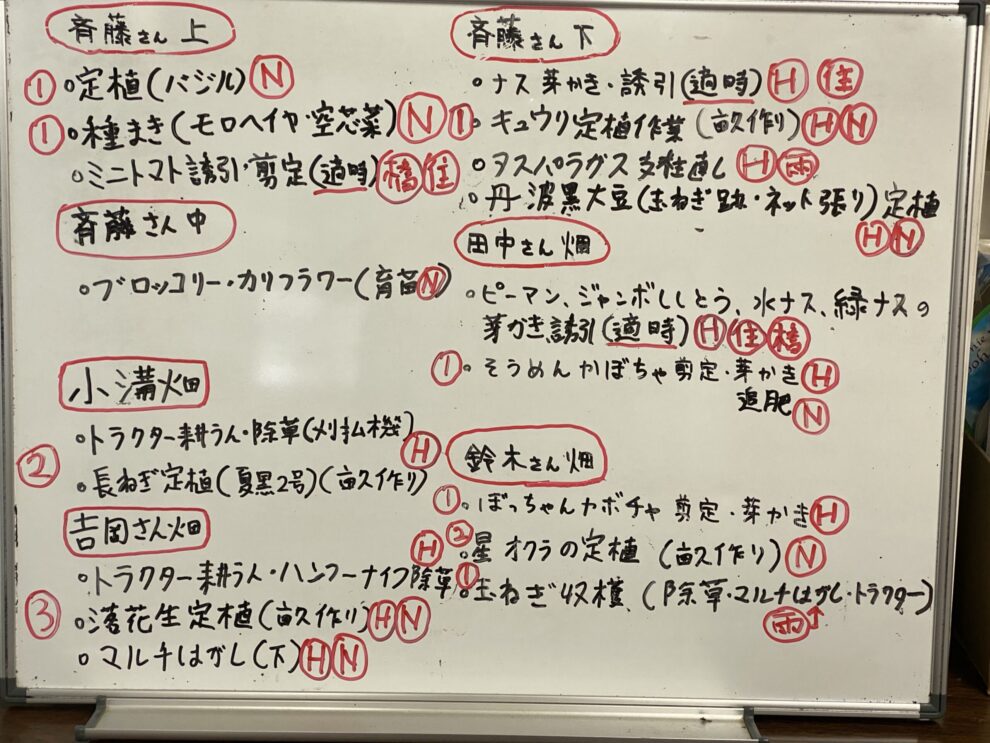 斉藤さん 上
① ○定植(バジル) N
① ○種まき(モロヘイヤ・空芯菜) N
○ミニトマト誘引・剪定(適時) 橋 住
斉藤さん 中
○ブロッコリー・カリフラワー(育苗 N)
小溝畑
○トラクター耕うん・除草(刈払機) H
②
○長ねぎ定植(夏黒2号)(畝作り)
吉岡さん畑
H
○トラクター耕うん・ハンマーナイフ除草
③ ○落花生定植(畝作り) H N
○マルチはがし(下) H N
斉藤さん 下
○ナス芽かき・誘引(適時) H 住
① ○キュウリ定植作業(畝作り) H N
○アスパラガス 支柱直し H 雨
○丹波黒大豆(玉ねぎ跡・ネット張り)定植
H N
田中さん畑
○ピーマン、ジャンボししとう、水ナス、緑ナスの
芽かき誘引(適時) H 住 橋
① ○そうめんかぼちゃ剪定・芽かき H
追肥 N
鈴木さん畑
① ○ぼっちゃんカボチャ 剪定・芽かき H
② ○星オクラの定植(畝作り) N
① ○玉ねぎ収穫(除草・マルチはがし・トラクター)
雨↑